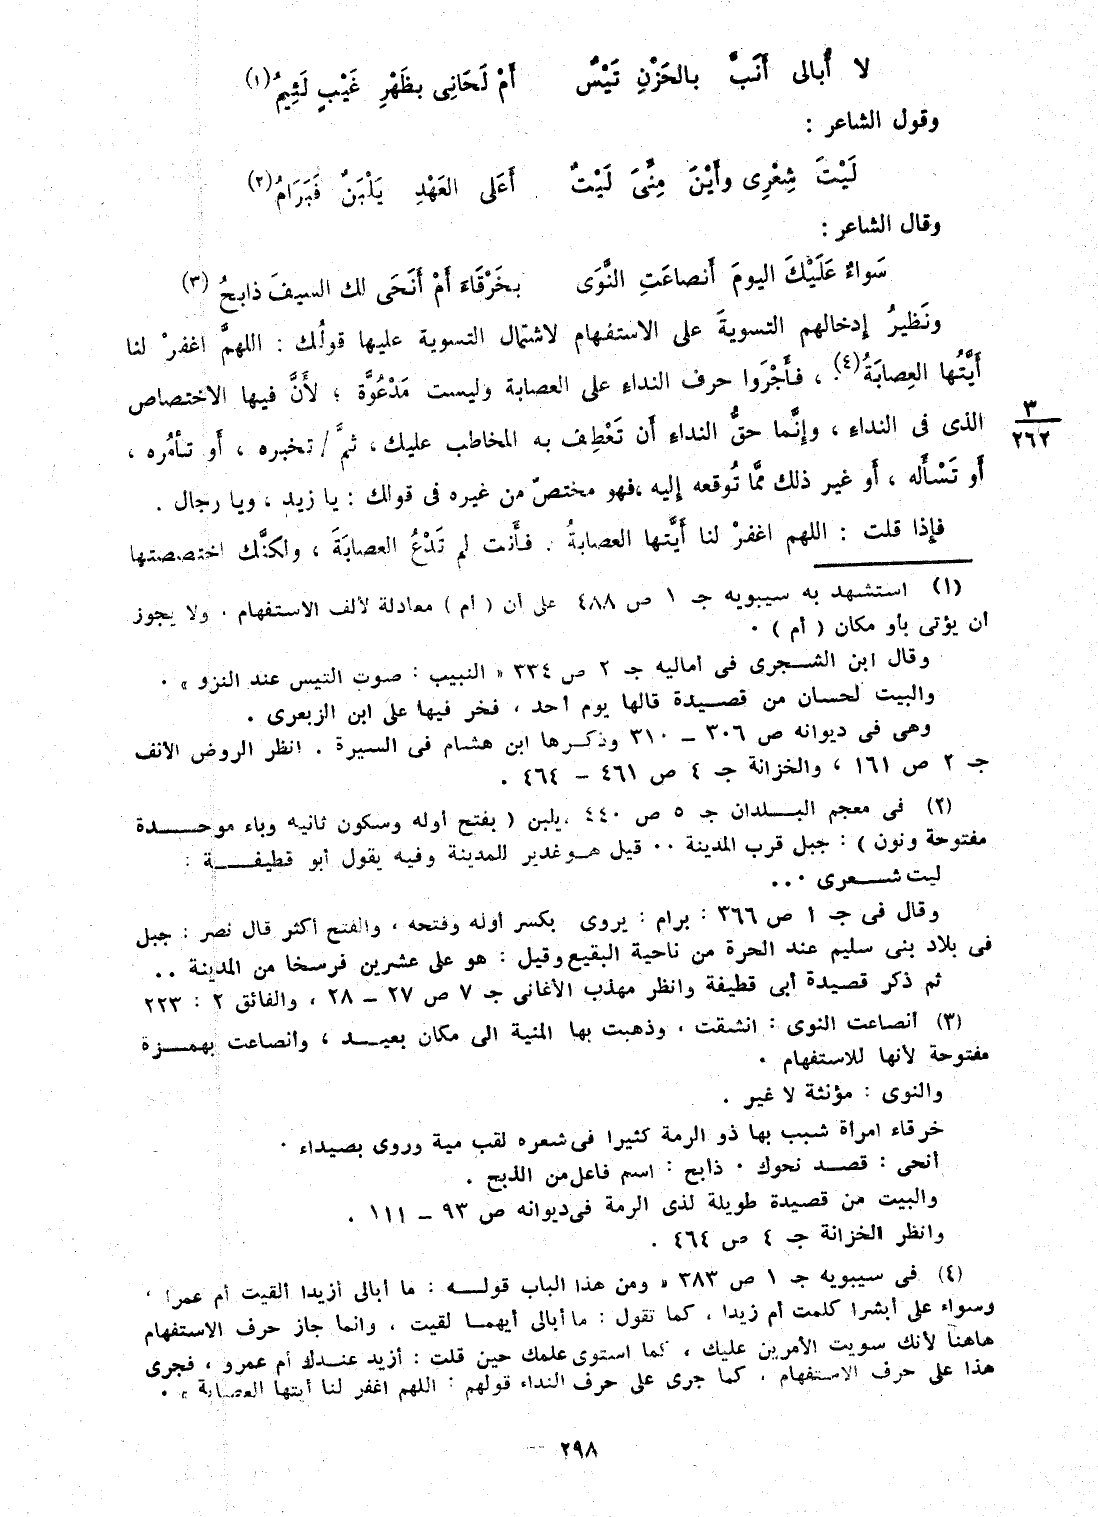 لا أُبالى أَنَبَّ بالحَزْنِ تَيْسٌ أَمْ لَحَانِى بظَهْرِ غَيْبٍ لَئِيمُ(١)
وقول الشاعر :
لَيْتَ شِعْرِى وأَيْنَ مِنِّىَ لَيْتٌ أَعَلى العَهْدِ يَلْبَنٌ فَبَرَامُ(٢)
وقال الشاعر :
سَواءٌ عَلَيْكَ اليومَ أَنصاعَتِ النَّوَى بخَرْقَاءَ أَمْ أَنْحَى لك السيفَ ذابحُ (٣)
ونَظيرُ إدخالهم التسويةَ على الاستفهام لاشتمال التسوية عليها قولُك : اللهمَّ اغفرْ لنا
أَيَّتُها العِصابَةُ(٤). ، فأَجْرَوا حرف النداءِ على العصابة وليست مَدْعُوَّة ؛ لأَنَّ فيها الاختصاص
الذى فى النداءِ ، وإنَّما حقُّ النداءِ أن تَعْطِف به المخاطب عليك ، ثمَّ / تخبره ، أَو تأمُره ،
٣
٢٦٢
أَو تَسْأَله ، أَو غير ذلك ممَّا تُوقعه إليه ،فهو مختصّ من غيره فى قولك : يا زيد ، ويا رجال .
فإذا قلت : اللهم اغفرْ لنا أَيَّتها العصابةُ . فأَنت لم تَدْعُ العصابَةَ ، ولكنَّك اختصصتها
(١) استشهد به سيبويه جـ ١ ص ٤٨٨ على أن ( أم ) معادلة لألف الاستفهام . ولا يجوز
أن يؤتى بأو مكان ( أم ) .
وقال ابن الشجرى فى أماليه جـ ٢ ص ٣٣٤ « النبيب : صوت التيس عند النزو » .
والبيت لحسان من قصيدة قالها يوم أحد ، فخر فيها على ابن الزبعرى .
وهى فى ديوانه ص ٣٠٦ – ٣١٠ وذكرها ابن هشام فى السيرة . انظر الروض الأنف
جـ ٢ ص ١٦١ ، والخزانة جـ ٤ ص ٤٦١ – ٤٦٤ .
(٢) فى معجم البلدان جـ ٥ ص ٤٤٠ .يلبن ( بفتح أوله وسكون ثانيه وباء موحدة
مفتوحة ونون ) : جبل قرب المدينة .. قيل هو غدير للمدينة وفيه يقول أبو قطيفة :
ليت شعرى ...
وقال فى جـ ١ ص ٣٦٦ : برام : يروى بكسر أوله وفتحه ، والفتح أكثر قال نصر : جبل
فى بلاد بنى سليم عند الحرة من ناحية البقيع وقيل : هو على عشرين فرسخا من المدينة ..
ثم ذكر قصيدة أبى قطيفة وانظر مهذب الأغانى جـ ٧ ص ٢٧ – ٢٨ ، والفائق ٢ : ٢٢٣
(٣) أنصاعت النوى : انشقت ، وذهبت بها المنية الى مكان بعيد ، وأنصاعت بهمزة
مفتوحة لأنها للاستفهام .
والنوى : مؤنثة لا غير .
خرقاء امرأة شبب بها ذو الرمة كثيرا فى شعره لقب مية وروى بصيداء .
أنحى : قصد نحوك . ذابح : اسم فاعل من الذبح .
والبيت من قصيدة طويلة لذى الرمة فى ديوانه ص ٩٣ – ١١١ .
وانظر الخزانة جـ ٤ ص ٤٦٤ .
(٤) فى سيبويه جـ ١ ص ٣٨٣ « ومن هذا الباب قوله : ما أبالى أزيدا ألقيت أم عمرا ،
وسواء على أبشرا كلمت أم زيدا ، كما تقول : ما أبالى أيهما لقيت ، وانما جاز حرف الاستفهام
هاهنا لأنك سويت الأمرين عليك ، كما استوى علمك حين قلت : أزيد عندك أم عمرو ، فجرى
هذا على حرف الاستفهام ، كما جرى على حرف النداء قولهم : اللهم اغفر لنا أيتها العصابة » .
٢٩٨